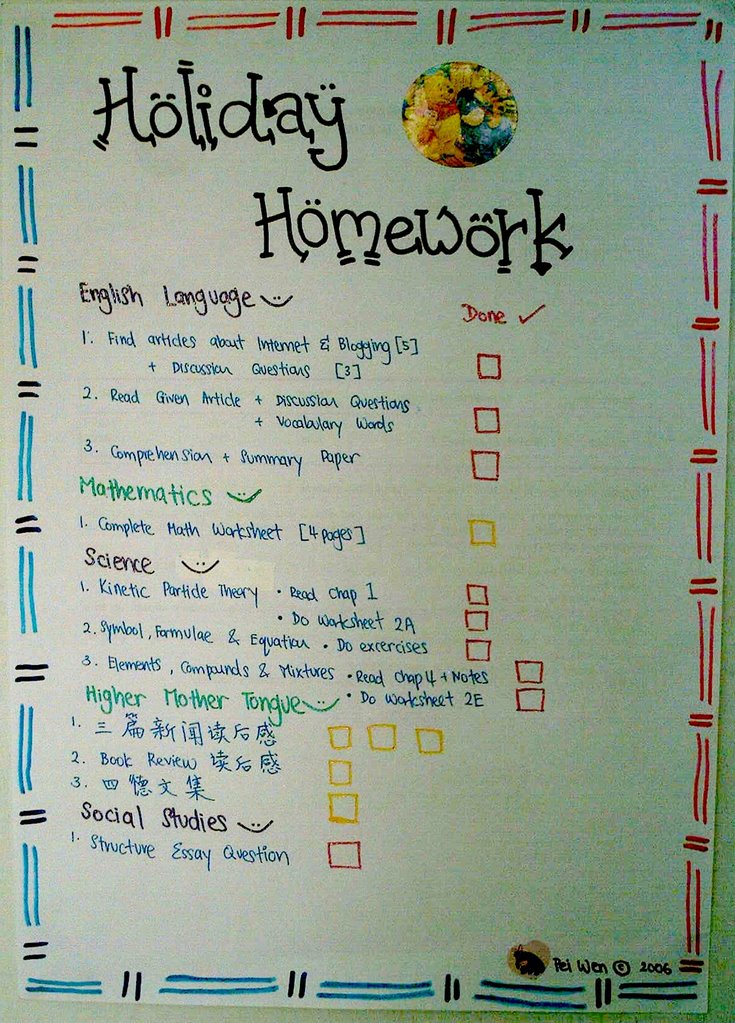 Holiday
Homework
English Language
Done ✓
1. Find articles about Internet & Blogging [5]
+ Discussion Questions [3]
2. Read Given Article + Discussion Questions
+ Vocabulary Words
3. Comprehension + Summary Paper
Mathematics
1. Complete Math Worksheet [4 pages]
Science
1. Kinetic Particle Theory • Read Chap 1
• Do Worksheet 2A
2. Symbol, Formulae & Equation • Do excercises
3. Elements, Compounds & Mixtures • Read Chap 4 + Notes
• Do Worksheet 2E
Higher Mother Tongue
1. 三篇新闻读后感
2. Book Review 读后感
3. 四德文集
Social Studies
1. Structure Essay Question
Pei Wen © 2006